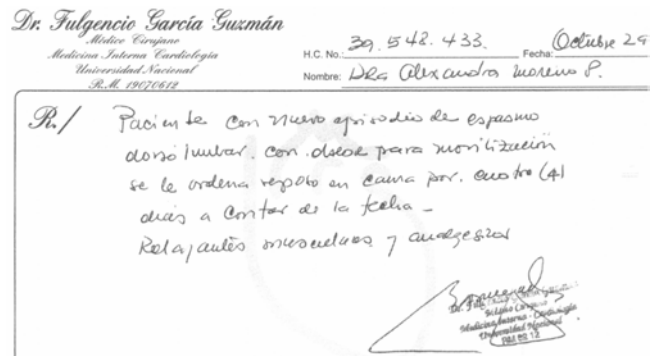 Dr. Fulgencio García Guzmán
Médico Cirujano
Medicina Interna Cardiología
Universidad Nacional
R.M. 19070612
H.C. No.: 39.548.433.
Fecha: Octubre 29
Nombre: Dra Alexandra Moreno P.
R/
Paciente con nuevo episodio de espasmo
dorso lumbar. con dolor para movilización
se le ordena reposo en cama por. cuatro (4)
dias a contar de la fecha -
Relajantes musculares y analgesicos
Medicina Interna - Cardiología
Universidad Nacional